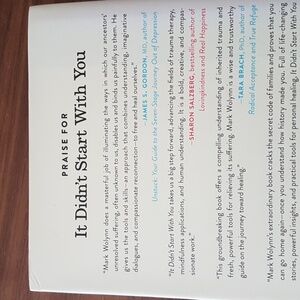 PRAISE FOR
It Didn't Start With You
"Mark Wolynn does a masterful job of illuminating the ways in which our ancestors'
unresolved suffering, often unknown to us, disables us and binds us painfully to them. He
gives us the tools and skills—an approach that combines understanding, imaginative
dialogues, and compassionate reconnection—to free and heal ourselves."
—JAMES S. GORDON, MD, author of
Unstuck: Your Guide to the Seven-Stage Journey Out of Depression
"It Didn't Start With You takes us a big step forward, advancing the fields of trauma therapy,
mindfulness applications, and human understanding. It is a bold, creative, and compas-
sionate work."
—SHARON SALZBERG, bestselling author of
Lovingkindness and Real Happiness
"This groundbreaking book offers a compelling understanding of inherited trauma and
fresh, powerful tools for relieving its suffering. Mark Wolynn is a wise and trustworthy
guide on the journey toward healing."
—TARA BRACH, PhD, author of
Radical Acceptance and True Refuge
"Mark Wolynn's extraordinary book cracks the secret code of families and proves that you
can go home again—once you understand how history made you. Full of life-changing
stories, powerful insights, and practical tools for personal healing, It Didn't Start With You